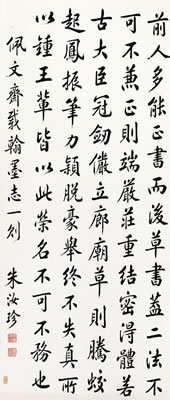 前人多能正書而後草書蓋二法不
可不兼正則端嚴莊重結密得體若
古大臣冠劒儼立廊廟草則騰蛟
起鳳振筆力穎脫豪舉終不失真所
以鍾王輩皆以此榮名不可不務也
佩文齋載翰墨志一則
朱汝珍